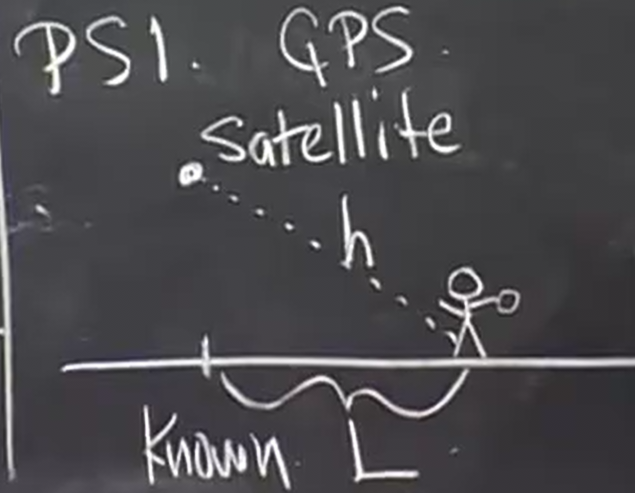 PS1. GPS.
Satellite
h
Known. L